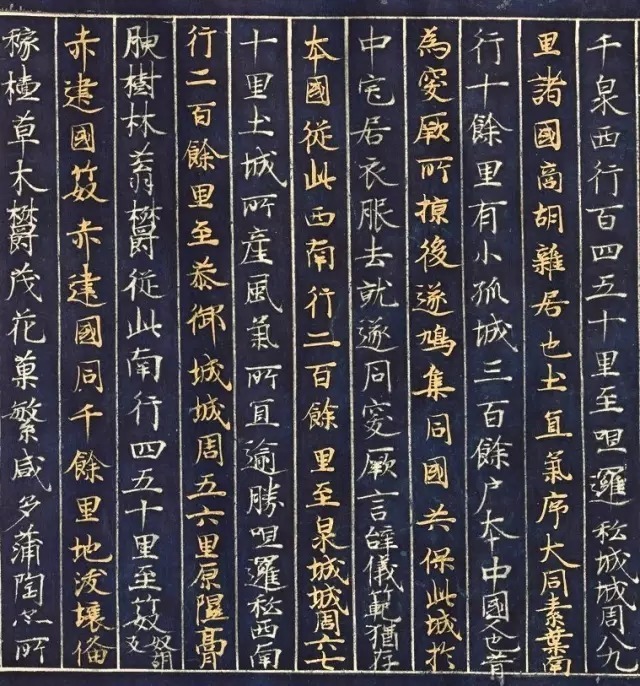 千泉西行百四五十里至呾邏私城城周八九
里諸國商胡雜居也土宜氣序大同素葉南
行十餘里有小孤城三百餘户本中國人也昔
為突厥所掠後遂鳩集同國共保此城於
中宅居衣服去就遂同突厥言辭儀範猶存
本國從此西南行二百餘里至泉城城周六七
十里土城所產風氣所宜逾勝呾邏私西南
行二百餘里至恭御城城周五六里原隰膏
腴樹林蓊欝從此南行四五十里至笯
赤建國笯赤建國同千餘里地沃壤備
稼穡草木欝茂花菓繁咸多蒲陶所